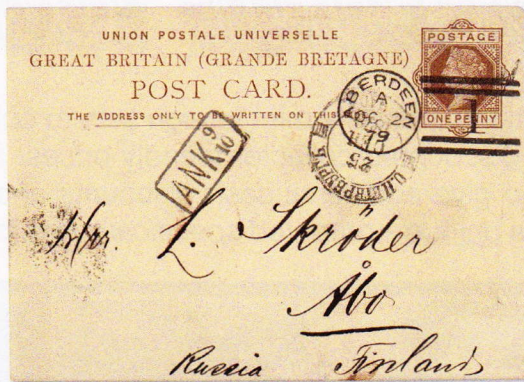 UNION POSTALE UNIVERSELLE
GREAT BRITAIN (GRANDE BRETAGNE)
POST CARD.
THE ADDRESS ONLY TO BE WRITTEN ON THIS
POSTAGE
ONE PENNY
ABERDEEN
A
OC 2
79
1
ANK 9/10
Herr. L. Skröder
Åbo
Russia Finland